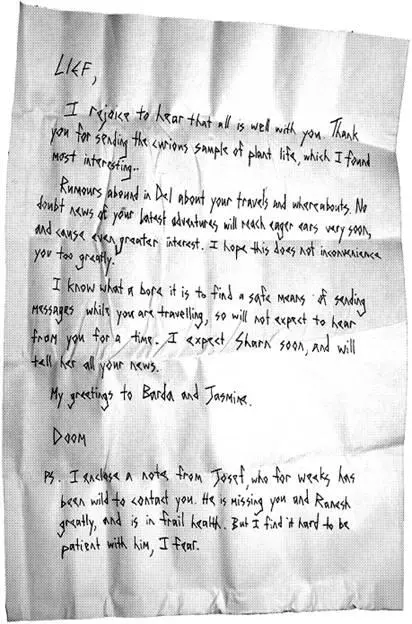 LIEF,
I rejoice to hear that all is well with you. Thank
you for sending the curious sample of plant life, which I found
most interesting..
Rumours abound in Del about your travels and whereabouts. No
doubt news of your latest adventures will reach eager ears very soon,
and cause even greater interest. I hope this does not inconvenience
you too greatly.
I know what a bore it is to find a safe means of sending
messages while you are travelling, so will not expect to hear
from you for a time. I expect Sharn soon, and will
tell her all your news.
My greetings to Barda and Jasmine.
DOOM
PS. I enclose a note from Josef, who for weeks has
been wild to contact you. He is missing you and Ranesh
greatly, and is in frail health. But I find it hard to be
patient with him, I fear.